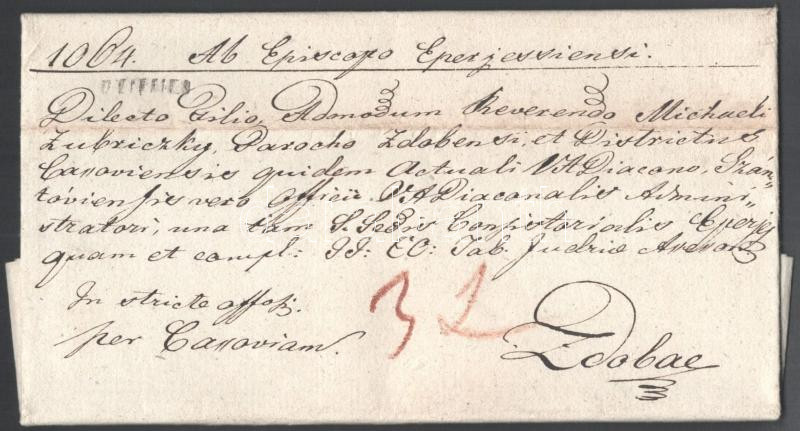 1064. Ab Episcopo Eperjessiensi.
EPERIES
Dilecto Filio, Admodum Reverendo Michaeli
Zubriczky, Parocho Zdobensi, et Districtus
Cassoviensis quidem Actuali VADiacono, Szán-
toviensis vero officii VADiaconalis Admini,,
stratori, una tam S. Sedis Consistorialis Eperjes
quam et compl: II: CC: Tab. Judriæ
In stricte offosis.
per Cassoviam.
32
Zdobae